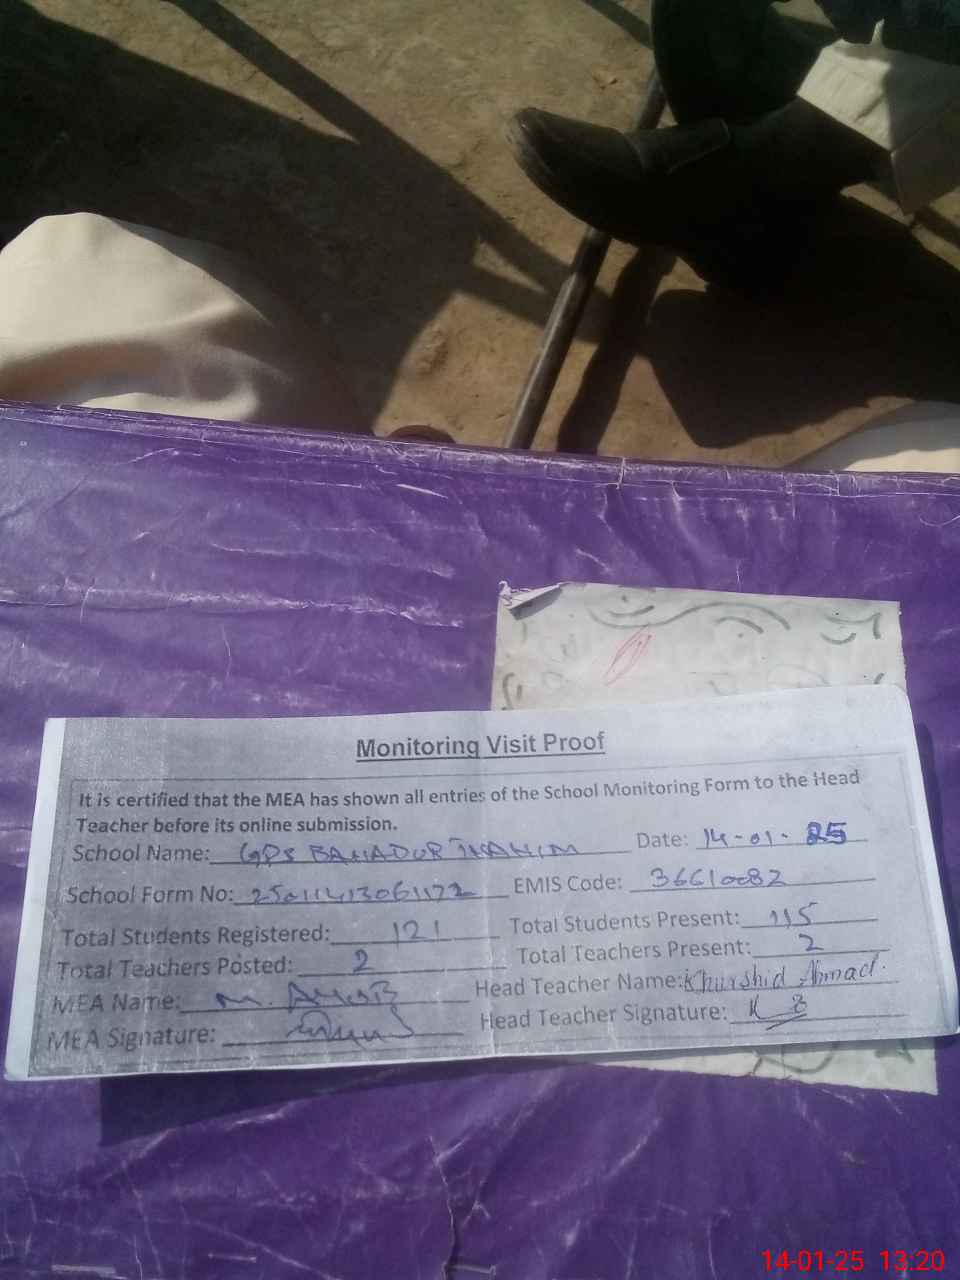 Monitoring Visit Proof
It is certified that the MEA has shown all entries of the School Monitoring Form to the Head
Teacher before its online submission.
School Name: GPS BAHADUR THAHIM Date: 14-01-25
School Form No: 25011413061172 EMIS Code: 36610082
Total Students Registered: 121 Total Students Present: 115
Total Teachers Posted: 2 Total Teachers Present: 2
MEA Name: M. AYUB Head Teacher Name: Khurshid Ahmad.
MEA Signature: Head Teacher Signature:
14-01-25 13:20